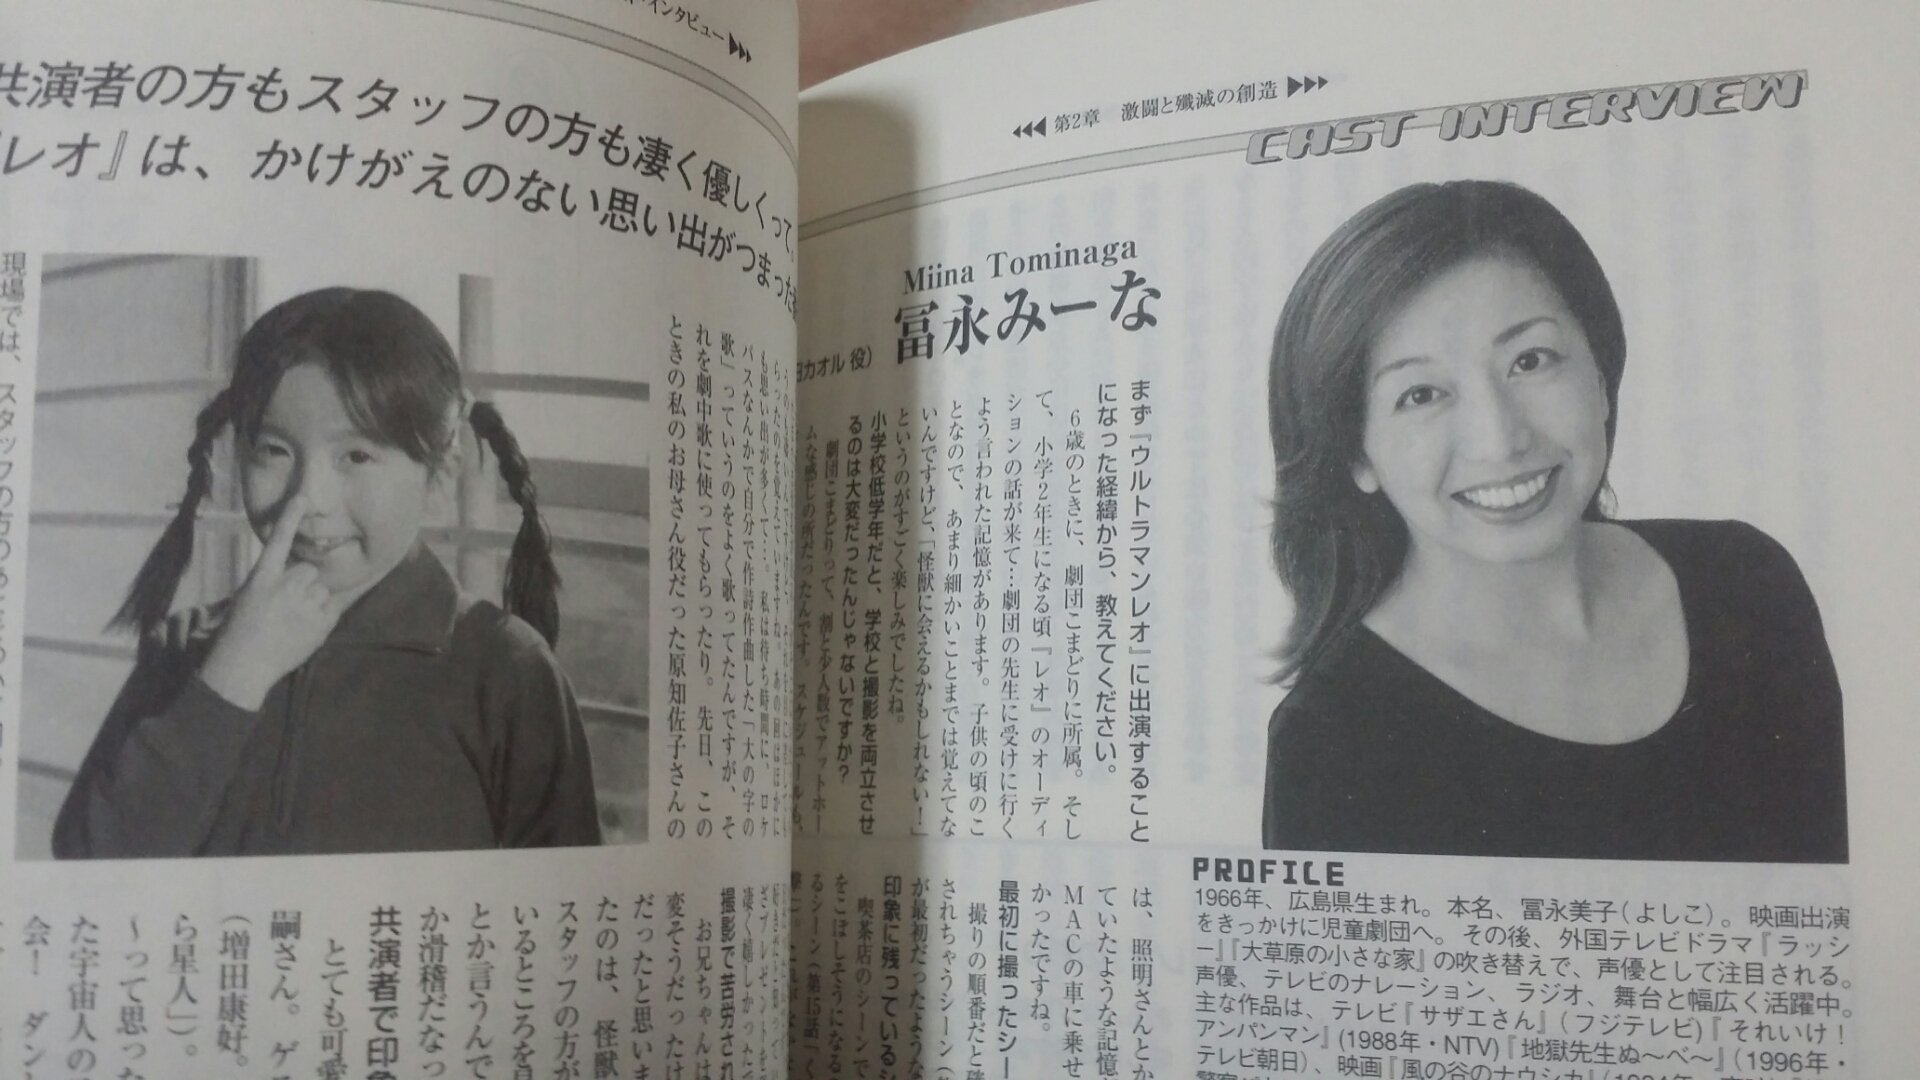 インタビュー
共演者の方もスタッフの方も凄く優しくって。
レオ』は、かけがえのない思い出がつまった
現場では、スタッフの方の
も思い出が多くて…。私は待ち時間に、ロケ
バスなんかで自分で作詩作曲した「大の字の
歌」っていうのをよく歌ってたんですが、そ
れを劇中歌に使ってもらったり。先日、この
ときの私のお母さん役だった原知佐子さんの
撮影で苦労され
お兄ちゃんは
変そうだったけ
だったと思いま
たのは、怪獣
スタッフの方が
いるところを見
とか言うんで
か滑稽だなっ
共演者で印象
とても可愛
嗣さん。ゲス
(増田康好。
ら星人」)。
〜って思った
た宇宙人の
会! ダン
第2章 激闘と殲滅の創造
CAST INTERVIEW
Miina Tominaga
冨永みーな
カオル 役)
まず『ウルトラマンレオ』に出演すること
になった経緯から、教えてください。
6歳のときに、劇団こまどりに所属。そし
て、小学2年生になる頃『レオ』のオーディ
ションの話が来て…劇団の先生に受けに行く
よう言われた記憶があります。子供の頃のこ
となので、あまり細かいことまでは覚えてな
いんですけど、「怪獣に会えるかもしれない!」
というのがすごく楽しみでしたね。
小学校低学年だと、学校と撮影を両立させ
るのは大変だったんじゃないですか?
劇団こまどりって、割と少人数でアットホー
ムな感じの所だったんです。スケジュールも、
は、照明さんとか
ていたような記憶
MACの車に乗せ
かったですね。
最初に撮ったシー
撮りの順番だと確
されちゃうシーン
が最初だったような
印象に残っているシ
喫茶店のシーンで
をこぼしそうになる
るシーン(第15話「く
PROFILE
1966年、広島県生まれ。本名、冨永美子(よしこ)。映画出演
をきっかけに児童劇団へ。その後、外国テレビドラマ『ラッシ
ー』『大草原の小さな家』の吹き替えで、声優として注目される。
声優、テレビのナレーション、ラジオ、舞台と幅広く活躍中。
主な作品は、テレビ『サザエさん』(フジテレビ)『それいけ!
アンパンマン』(1988年・NTV)『地獄先生ぬ〜べ〜』(1996年・
テレビ朝日)、映画『風の谷のナウシカ』(1984年・